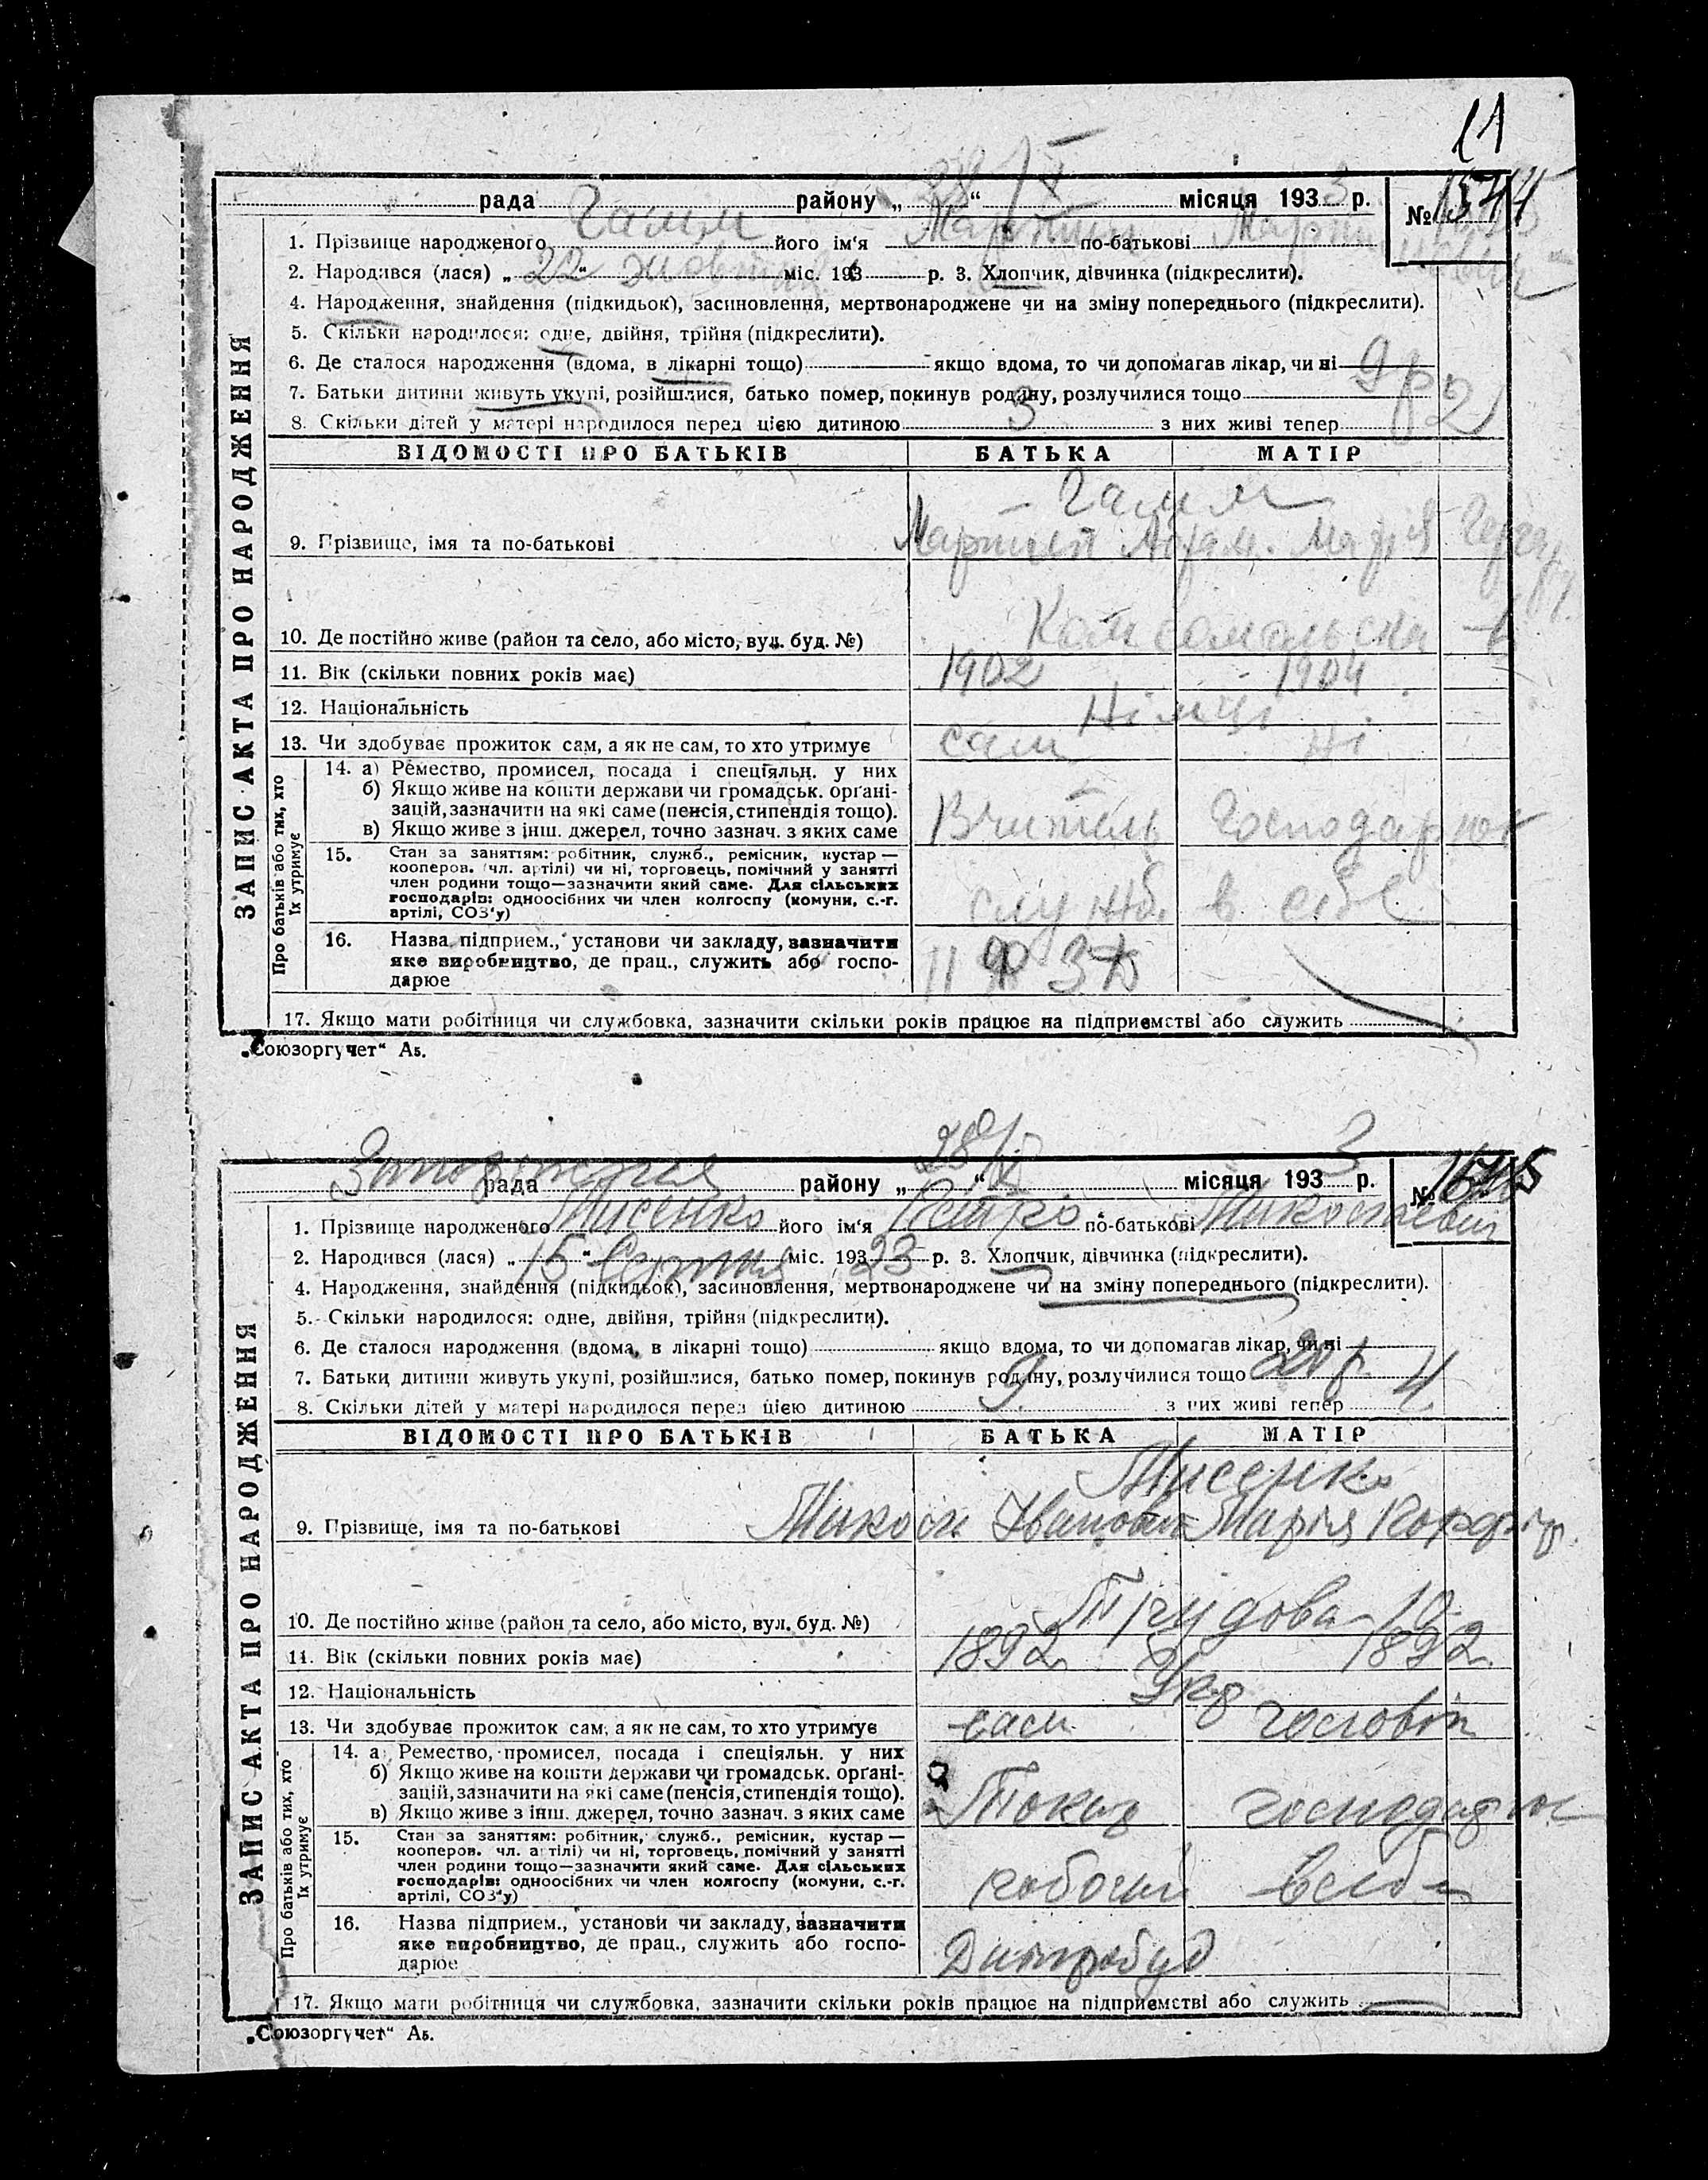 11
рада району „ 28/X “ місяця 1933 р. № 1574
1. Прізвище народженого Гамм його ім‘я Мартин по-батькові Мартинович
2. Народився (лася) „ 22 “ жовтня міс. 193 р. 3. Хлопчик, дівчинка (підкреслити).
4. Народження, знайдення (підкидьок), засиновлення, мертвонароджене чи на зміну попереднього (підкреслити).
5. Скільки народилося: одне, двійня, трійня (підкреслити).
6. Де сталося народження (вдома, в лікарні тощо) якщо вдома, то чи допомагав лікар, чи ні
7. Батьки дитини живуть укупі, розійшлися, батько помер, покинув родину, розлучилися тощо 9 р
8. Скільки дітей у матері народилося перед цією дитиною 3 з них живі тепер 2
ЗАПИС АКТА ПРО НАРОДЖЕННЯ
ВІДОМОСТІ ПРО БАТЬКІВ БАТЬКА МАТІР
Гамм
9. Прізвище, імя та по-батькові Мартин Абрам. Марія Гергард.
10. Де постійно живе (район та село, або місто, вул. буд. №) Комсомольська
11. Вік (скільки повних років має) 1902 1904
12. Національність Німці
13. Чи здобуває прожиток сам, а як не сам, то хто утримує сам ні
Про батьків або тих, хто їх утримує
14. а) Ремество, промисел, посада і спеціяльн. у них
б) Якщо живе на кошти держави чи громадськ. орґані-
зацій, зазначити на які саме (пенсія, стипендія тощо).
в) Якщо живе з інш. джерел, точно зазнач. з яких саме Вчитель Господарює
15. Стан за заняттям: робітник, служб., ремісник, кустар —
кооперов. (чл. артілі) чи ні, торговець, помічний у занятті
член родини тощо—зазначити який саме. Для сільських
господарів: одноосібних чи член колгоспу (комуни, с.-г.
артілі, СОЗ‘у) служб. в себе
16. Назва підприєм., установи чи закладу, зазначити
яке виробництво, де прац., служить або госпо-
дарює
17. Якщо мати робітниця чи службовка, зазначити скільки років працює на підприємстві або служить
„Союзоргучет“ А5.
Запоріжжя рада району „ 28/X “ місяця 1933 р. № 1575
1. Прізвище народженого Лисенко його ім‘я Петро по-батькові Миколаєвич
2. Народився (лася) „ 15 “ Серпня міс. 193 23 р. 3. Хлопчик, дівчинка (підкреслити).
4. Народження, знайдення (підкидьок), засиновлення, мертвонароджене чи на зміну попереднього (підкреслити).
5. Скільки народилося: одне, двійня, трійня (підкреслити).
6. Де сталося народження (вдома, в лікарні тощо) якщо вдома, то чи допомагав лікар, чи ні
7. Батьки дитини живуть укупі, розійшлися, батько помер, покинув родину, розлучилися тощо 20 р.
8. Скільки дітей у матері народилося перед цією дитиною 9. з них живі тепер 4
ЗАПИС АКТА ПРО НАРОДЖЕННЯ
ВІДОМОСТІ ПРО БАТЬКІВ БАТЬКА МАТІР
Лисенко
9. Прізвище, імя та по-батькові Микола Іванович Марія
10. Де постійно живе (район та село, або місто, вул. буд. №) Трудова - 10
11. Вік (скільки повних років має) 1892 1892
12. Національність Укр
13. Чи здобуває прожиток сам, а як не сам, то хто утримує сам чоловік
Про батьків або тих, хто їх утримує
14. а) Ремество, промисел, посада і спеціяльн. у них
б) Якщо живе на кошти держави чи громадськ. орґані-
зацій, зазначити на які саме (пенсія, стипендія тощо).
в) Якщо живе з інш. джерел, точно зазнач. з яких саме Токар господарює
15. Стан за заняттям: робітник, служб., ремісник, кустар —
кооперов. (чл. артілі) чи ні, торговець, помічний у занятті
член родини тощо—зазначити який саме. Для сільських
господарів: одноосібних чи член колгоспу (комуни, с.-г.
артілі, СОЗ‘у) робочий в себе
16. Назва підприєм., установи чи закладу, зазначити
яке виробництво, де прац., служить або госпо-
дарює Дніпробуд
17. Якщо мати робітниця чи службовка, зазначити скільки років працює на підприємстві або служить
„Союзоргучет“ А5.